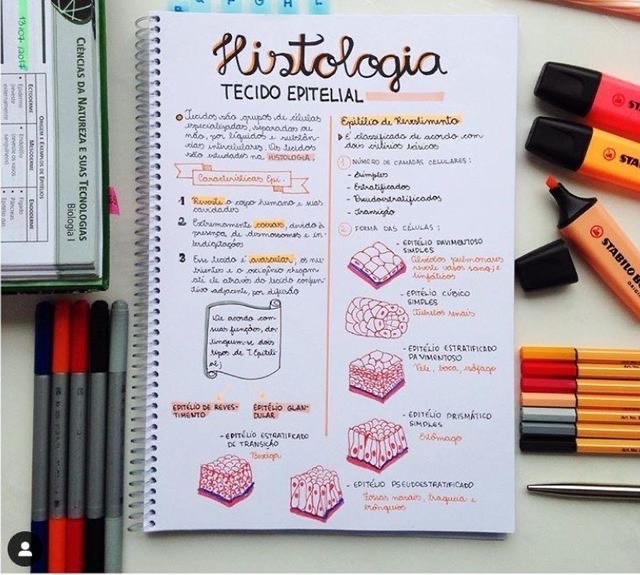 P Q F G H L
13/07/2017
CIÊNCIAS DA NATUREZA E SUAS TECNOLOGIAS
Biologia I
ORIGEM E EXEMPLOS DE EPITÉLIOS
ECTODERME
MESODERME
ENDODERME
Histologia
TECIDO EPITELIAL
Tecidos são grupos de células
especializadas, separadas ou
não, por líquidos e substân-
cias intercelulares. Os tecidos
são estudados na HISTOLOGIA.
Características Epi.
1 Reveste o corpo humano e suas
cavidades
2 Extremamente coesas, devido à
presença de desmossomos e in-
terdigitações
3 Esse tecido é avascular, os nu-
trientes e o oxigênio chegam
até ele através do tecido conjun-
tivo adjacente, por difusão
De acordo com
suas funções, dis-
tinguem-se dois
tipos de T. Epiteli
al;
EPITÉLIO DE REVES-
TIMENTO
EPITÉLIO GLAN-
DULAR
- EPITÉLIO ESTRATIFICADO
DE TRANSIÇÃO
Bexiga
Epitélio de Revestimento
É classificado de acordo com
dois critérios básicos
1 NÚMERO DE CAMADAS CELULARES:
- Simples
- Estratificados
- Pseudoestratificados
- Transição
2 FORMA DAS CÉLULAS:
- EPITÉLIO PAVIMENTOSO
SIMPLES
Alvéolos pulmonares
reveste vasos sang; e
linfáticos
- EPITÉLIO CÚBICO
SIMPLES
Túbulos renais
- EPITÉLIO ESTRATIFICADO
PAVIMENTOSO
Pele, boca, esôfago
- EPITÉLIO PRISMÁTICO
SIMPLES
Estômago
- EPITÉLIO PSEUDOESTRATIFICADO
Fossas nasais, traqueia e
brônquios
STABILO